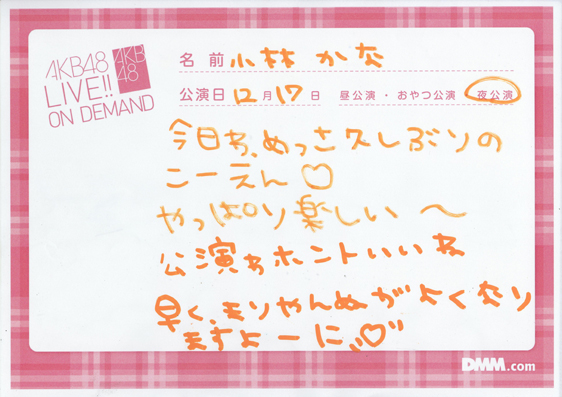 AKB48
LIVE!!
ON DEMAND
AKB
48
名前 小林 かな
公演日 12月17日 昼公演・おやつ公演・夜公演
今日わ、めっさ久しぶりの
こーえん♡
やっぱり楽しい〜
公演わホントいいな
早く、もりやんぬがよくなり
ますよーに、♡
DMM.com